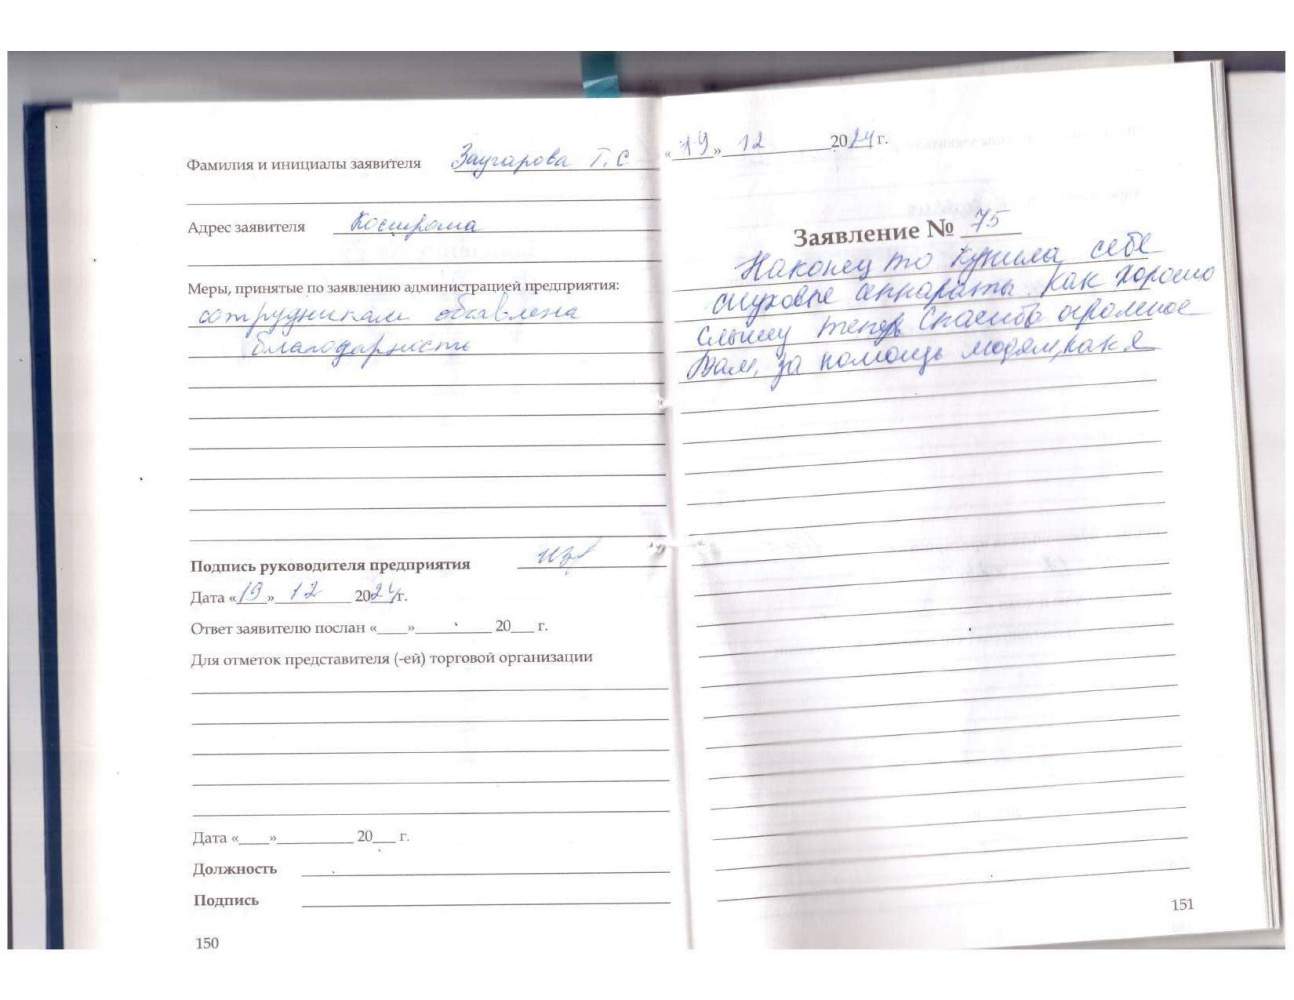 Фамилия и инициалы заявителя Заугарова Т. С
Адрес заявителя Кострома
Меры, принятые по заявлению администрацией предприятия:
сотрудникам объявлена
благодарность
Подпись руководителя предприятия
Дата «19» 12 2024г.
Ответ заявителю послан «___»__________ 20___ г.
Для отметок представителя (-ей) торговой организации
Дата «___»__________ 20___ г.
Должность
Подпись
150
«19» 12 2024 г.
Заявление № 75
Наконец то купила себе
слуховые аппараты. Как хорошо
слышу теперь Спасибо огромное
Вам, за помощь людям, как я
151